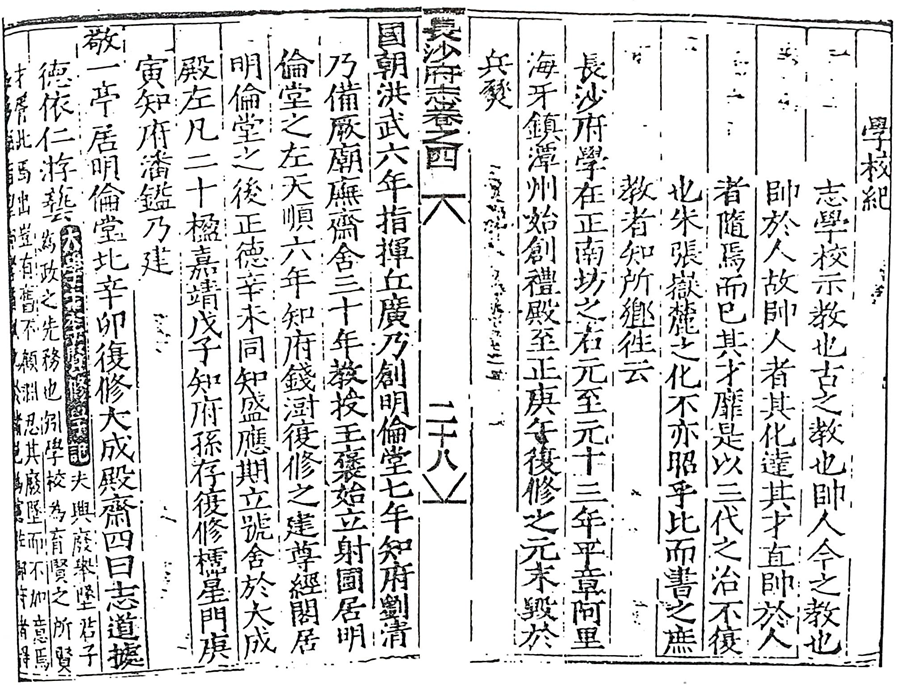 學校紀
志學校示教也古之教也帥人今之教也
帥於人故帥人者其化達其才直帥於人
者隨焉而已其才靡是以三代之治不復
也朱張嶽麓之化不亦昭乎比而書之庶
教者知所鄉往云
長沙府學在正南坊之右元至元十三年平章阿里
海牙鎮潭州始創禮殿至正庚午復修之元末毀於
兵燹
長沙府志卷之四
二十八
國朝洪武六年指揮丘廣乃創明倫堂七年知府劉清
乃備厥廟廡齋舍三十年教授王褒始立射圃居明
倫堂之左天順六年知府錢澍復修之建尊經閣居
明倫堂之後正德辛未同知盛應期立號舍於大成
殿左凡二十楹嘉靖戊子知府孫存復修櫺星門庚
寅知府潘鑑乃建
敬一亭居明倫堂北辛卯復修大成殿齋四曰志道據
德依仁游藝 夫興廢舉墜君子
為政之先務也況學校為育賢之所賢
才胥此焉出豈有舊不顧